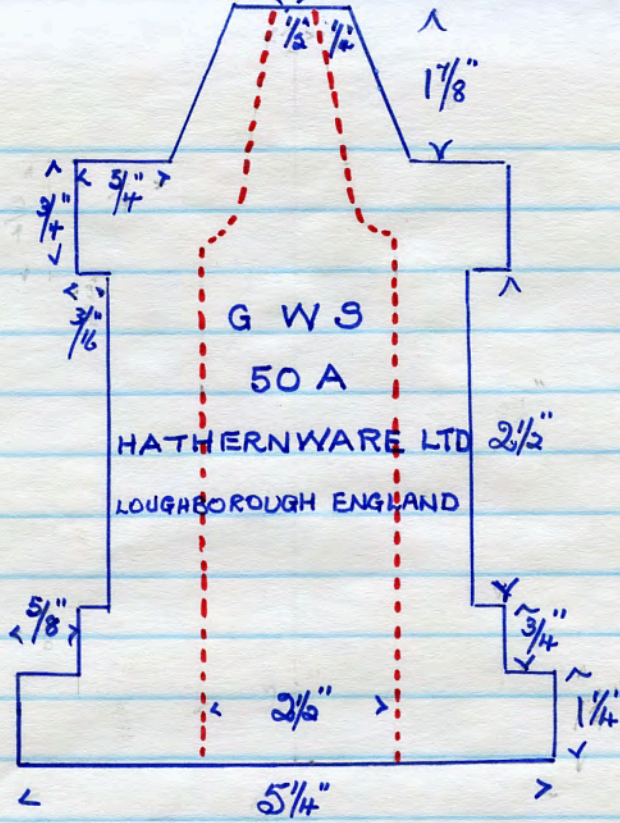 1/2" 1/4"
1 7/8"
3/4"
3/4"
3/16"
G W S
50 A
HATHERNWARE LTD
2 1/2"
LOUGHBOROUGH ENGLAND
5/8"
3/4"
2 1/2"
1 1/4"
5 1/4"